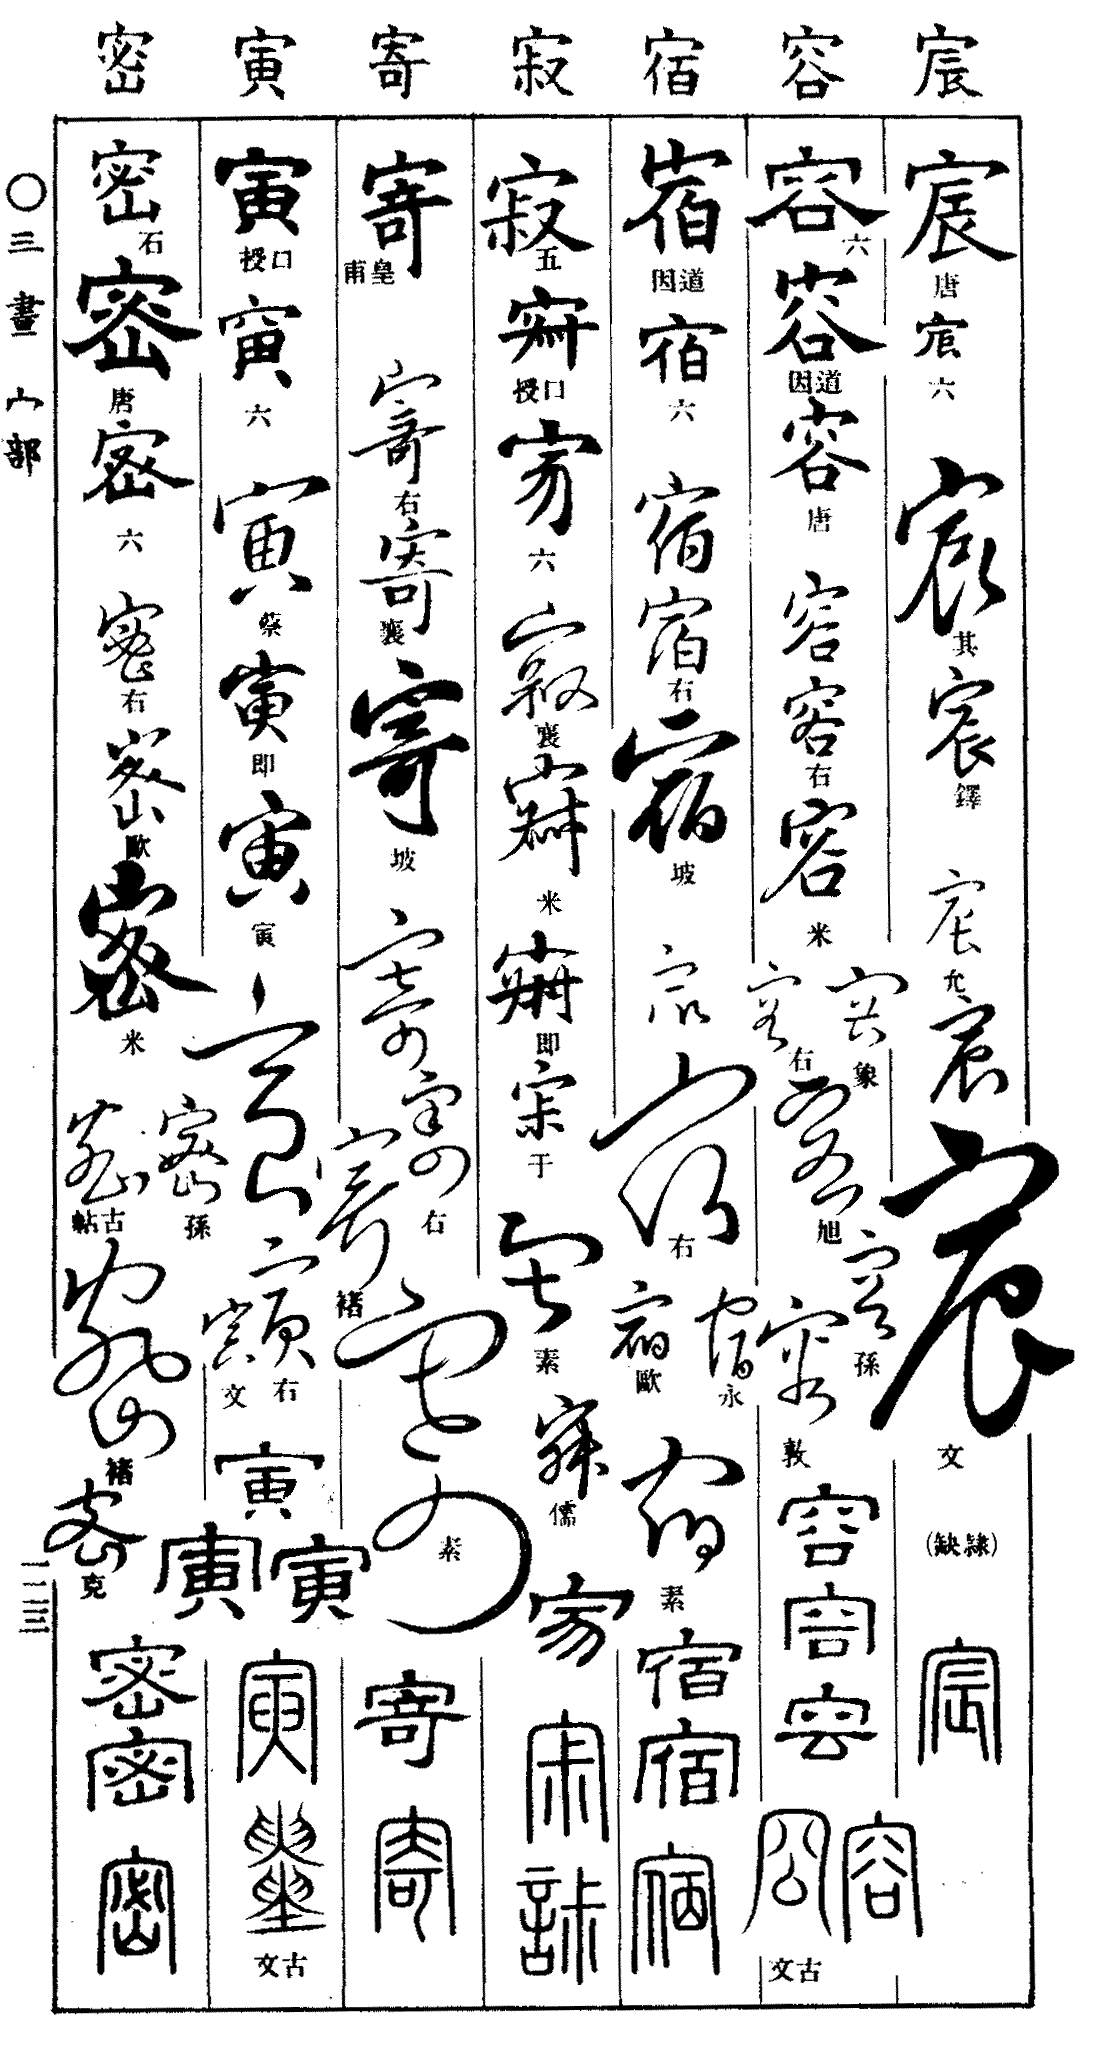 宸 容 宿 寂 寄 寅 密
宸
唐
宸
六
宸
其
宸
鐸
宸
允
宸
宸
文
(缺隸)
宸
容
六
容
因道
容
唐
容
容
右
容
米
容
容
右
象
容
旭
容
孫
容
敦
容
容
容
容
容
文古
宿
因道
宿
六
宿
宿
右
宿
坡
宿
宿
右
宿
歐
宿
永
宿
素
宿
宿
宿
寂
五
寂
授口
寂
六
寂
襄
寂
米
寂
即
寂
于
寂
素
寂
儒
寂
寂
寄
甫皇
寄
右
寄
襄
寄
坡
寄
寄
右
寄
褚
寄
素
寄
寄
寅
授口
寅
六
寅
蔡
寅
即
寅
寅
寅
寅
右
寅
文
寅
寅
寅
寅
文古
密
石
密
唐
密
六
密
右
密
歐
密
米
密
孫
密
帖古
密
褚
密
克
密
密
密
〇三畫 宀部
一二三